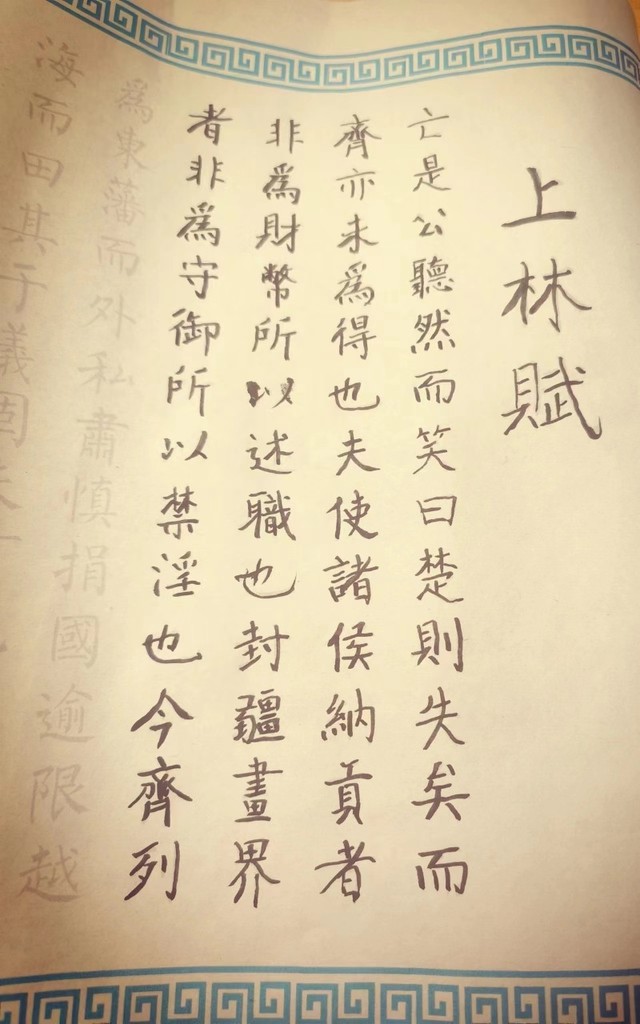 上林賦
亡是公聽然而笑曰楚則失矣而
齊亦未為得也夫使諸侯納貢者
非為財幣所以述職也封疆畫界
者非為守御所以禁淫也今齊列
為東藩而外私肅慎捐國逾限越
海而田其于義固未